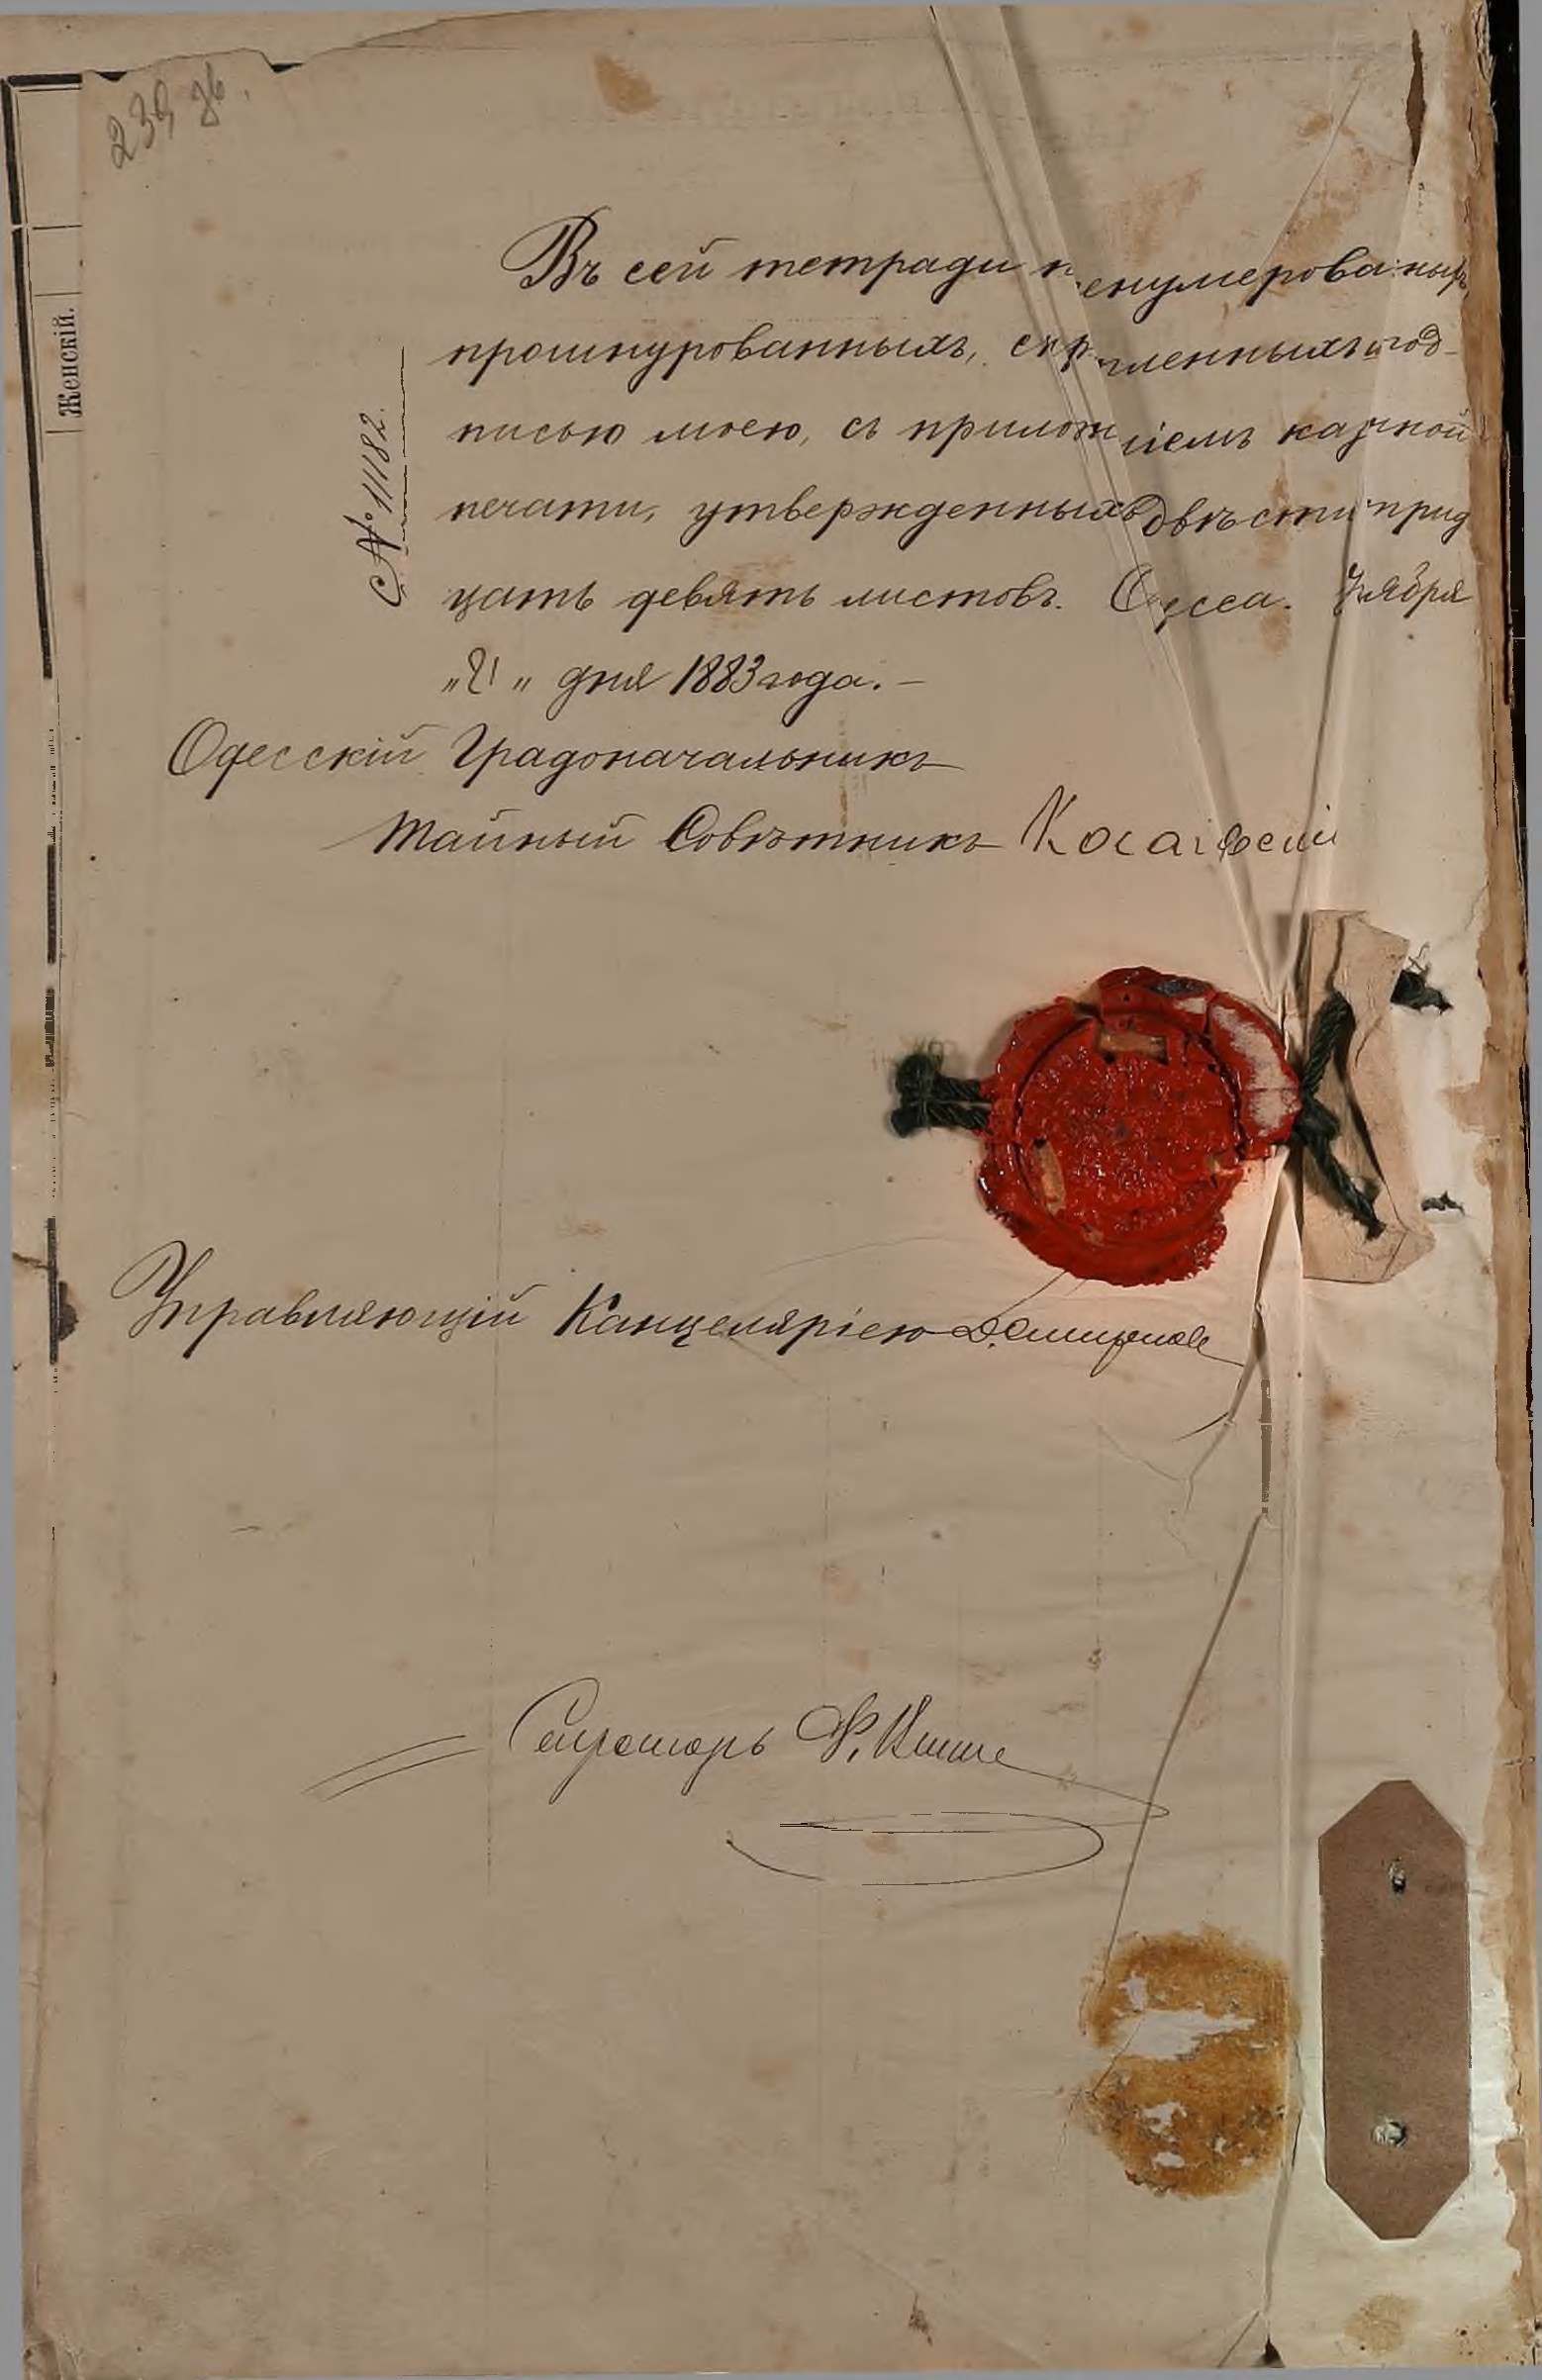 239 об.
Женскій.
№ 11182.
Въ сей тетради пренумерованныхъ
прошнурованныхъ, скрѣпленныхъ под-
писью моею, съ приложеніемъ казенной
печати, утвержденныхъ двѣсти трид
цать девять листовъ. Одесса. Ноября
„21„ дня 1883 года.—
Одесскій Градоначальникъ
Тайный Совѣтникъ Косаговскій
Управляющій Канцеляріею